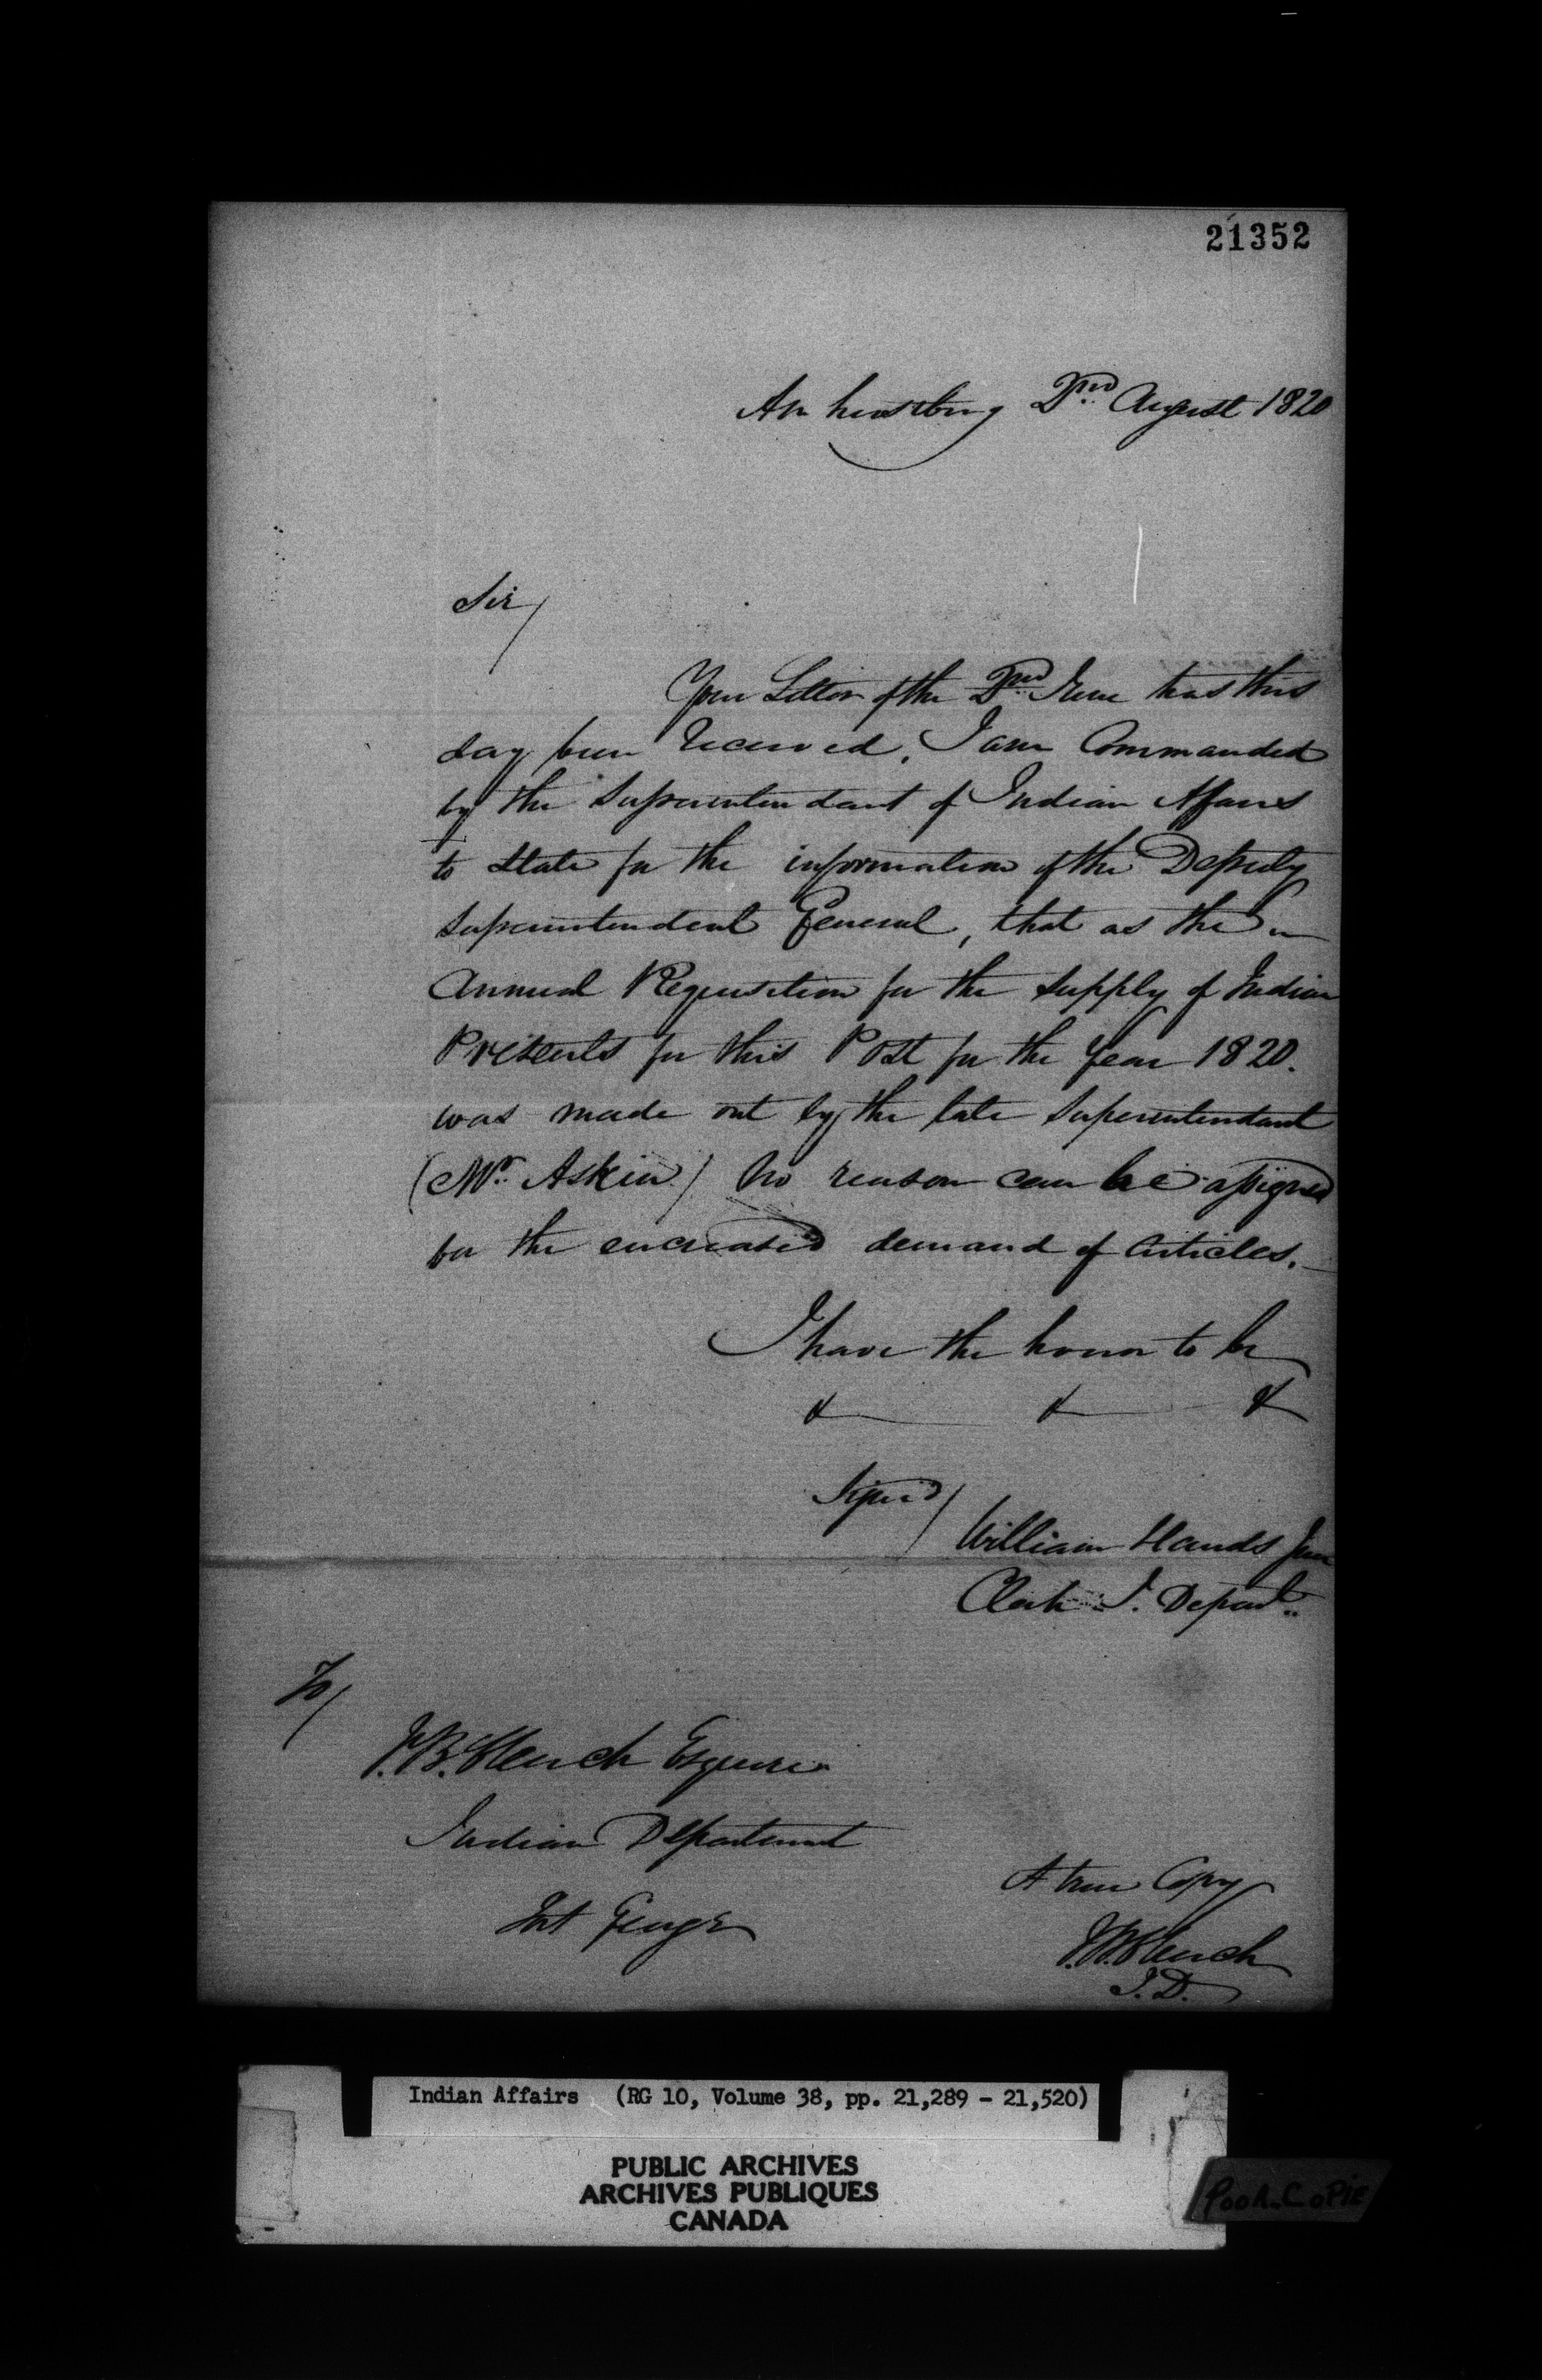 21352
Amherstburg 2nd August 1820
Sir/
Your Letter of the 2nd June has this
day been received. I am Commanded
by the Superintendant of Indian Affairs
to State for the information of the Deputy
Superintendent General, that as the
Annual Requisition for the supply of Indian
Presents for this Post for the year 1820.
was made out by the late Superintendant
(Mr. Askin) No reason can be assigned
for the encreased demand of Articles.
I have the honor to be
& & &
Signed/
William Hands Jun
Clerk I. Depart.
To/
J. B. Clench Esquire
Indian Department
Fort George
A true Copy
J. B. Clench
I. D.
Indian Affairs (RG 10, Volume 38, pp. 21,289 - 21,520)
PUBLIC ARCHIVES
ARCHIVES PUBLIQUES
CANADA
POOR COPIE